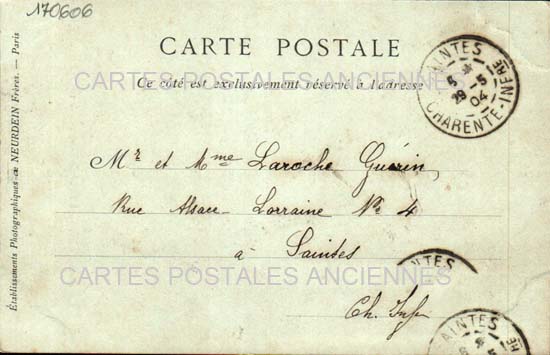 170606
CARTE POSTALE
Ce côté est exclusivement réservé à l'adresse
CARTES POSTALES ANCIENNES
SAINTES
5 *
29 -5
04
CHARENTE-INFRE
Mr et Mme Laroche Guérin,
Rue Alsace-Lorraine No 4
à Saintes
CARTES POSTALES ANCIENNES
Ch. Infre
INTES
AINTES
Établissements Photographiques de NEURDEIN Frères. — Paris